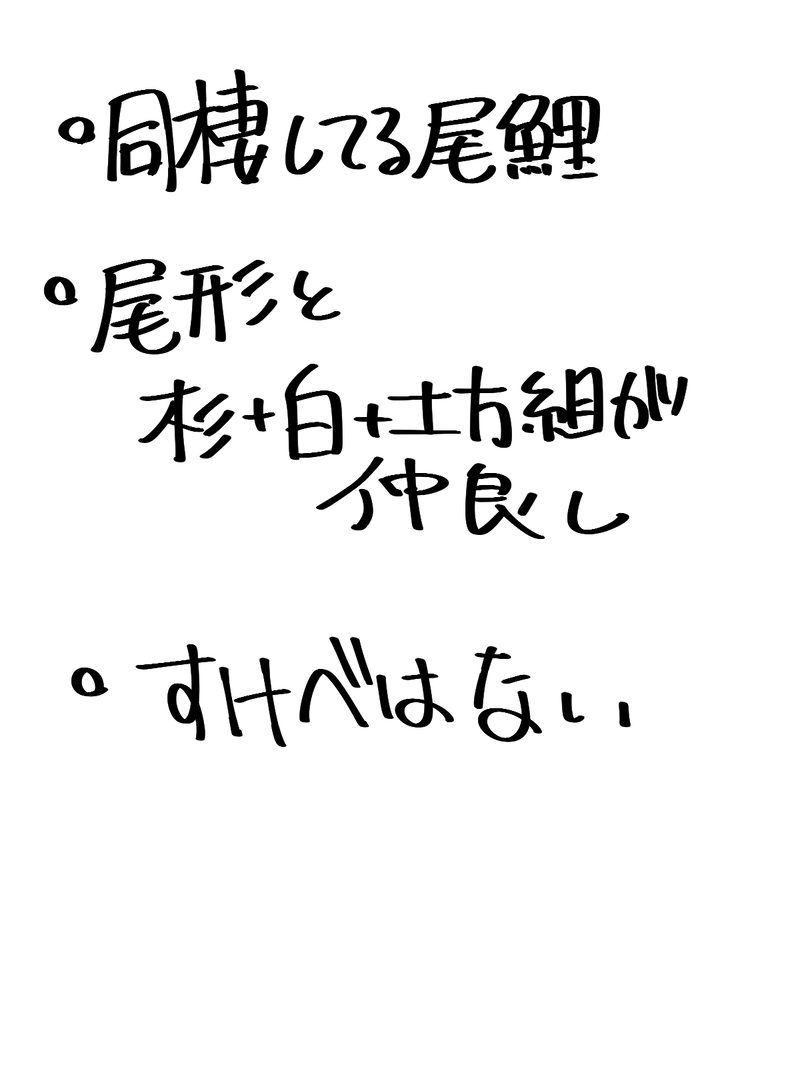 ○同棲してる尾鯉
○尾形と
杉+白+土方組が
仲良し
○すけべはない